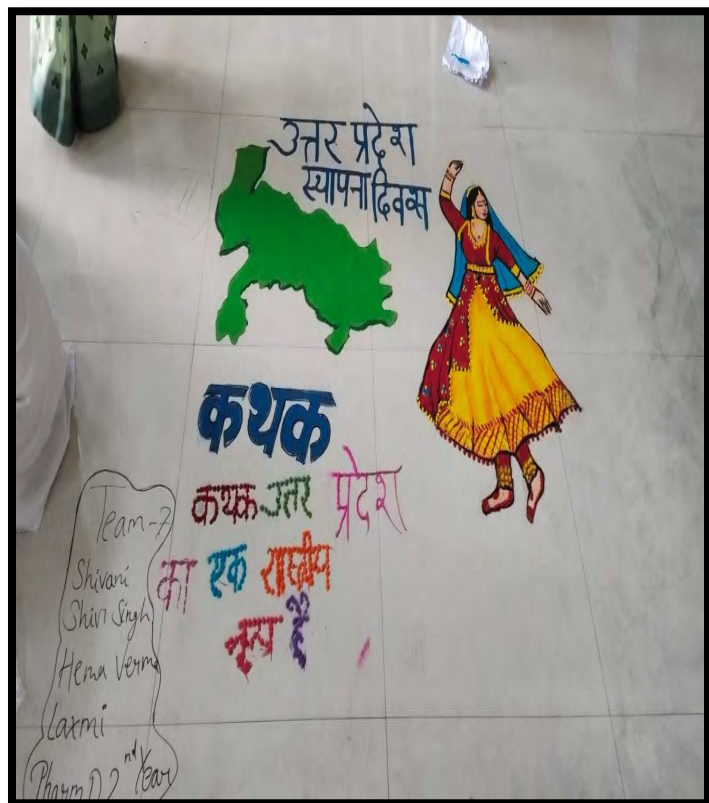 उत्तर प्रदेश
स्थापना दिवस
कथक
कथक उत्तर प्रदेश
का एक शास्त्रीय
नृत्य है
Team-7
Shivani
Shivi Singh
Hema Verma
Laxmi
Pharm D 2nd Year